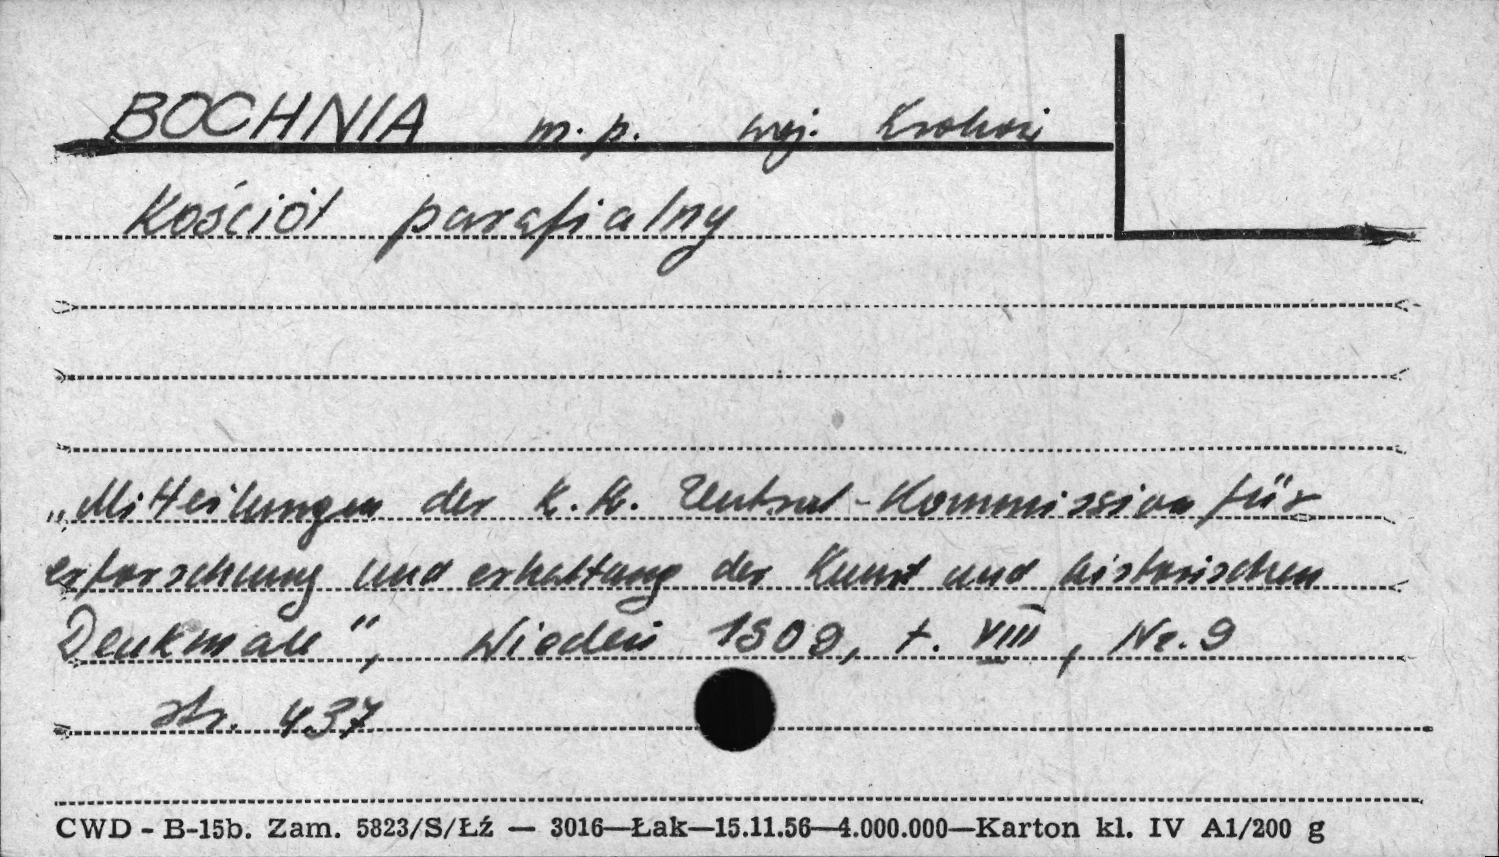 BOCHNIA m.p. woj. Krakow
Kościół parafialny
„Mitteilungen der K.K. Zentral-Kommission für
erforschung und erhaltung der Kunst und historischen
Denkmale", Wiedeń 1909, t. VIII, Nr. 9
str. 437
CWD - B-15b. Zam. 5823/S/Łź — 3016—Łak—15.11.56—4.000.000—Karton kl. IV A1/200 g